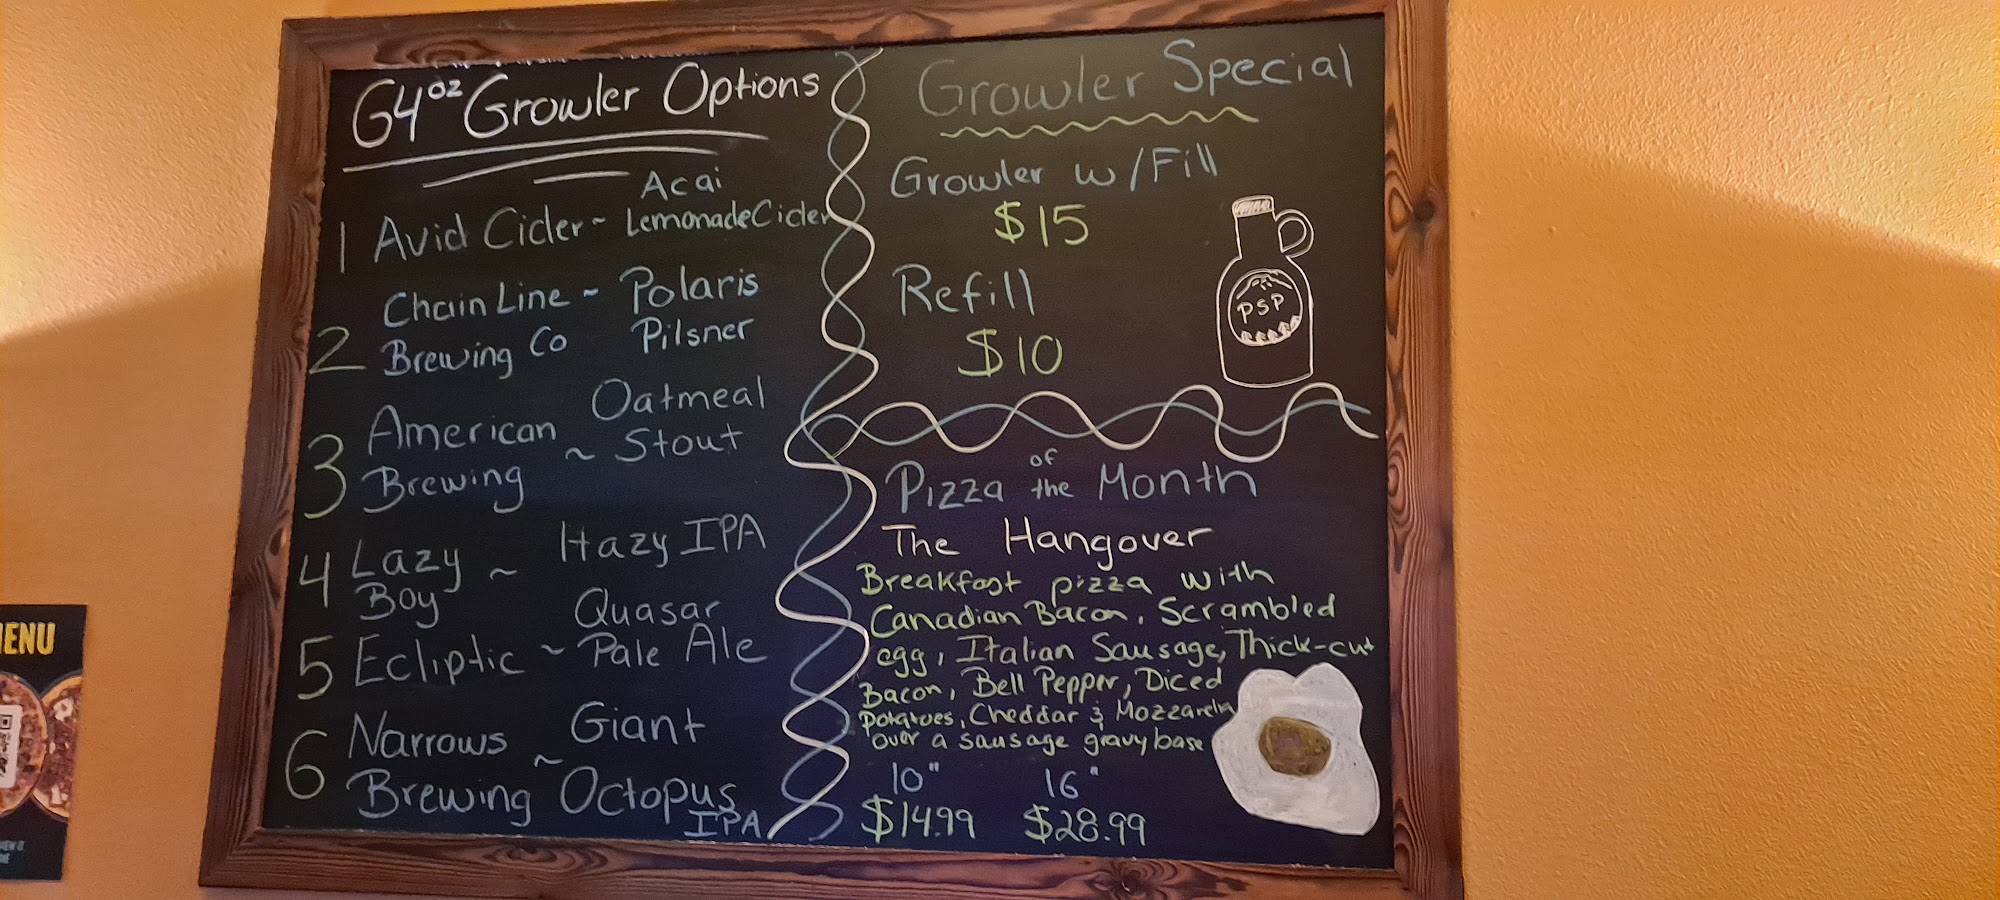 64oz Growler Options
1 Avid Cider ~ Acai
Lemonade Cider
2 Chain Line ~ Polaris
Brewing Co Pilsner
3 American ~ Oatmeal
Brewing Stout
4 Lazy ~ Hazy IPA
Boy
5 Ecliptic ~ Quasar
Pale Ale
6 Narrows ~ Giant
Brewing Octopus
IPA
Growler Special
Growler w/Fill
$15
Refill
$10
PSP
Pizza of the Month
The Hangover
Breakfast pizza with
Canadian Bacon, Scrambled
egg, Italian Sausage, Thick-cut
Bacon, Bell Pepper, Diced
Potatoes, Cheddar & Mozzarella
over a sausage gravy base
10" 16"
$14.99 $28.99
MENU